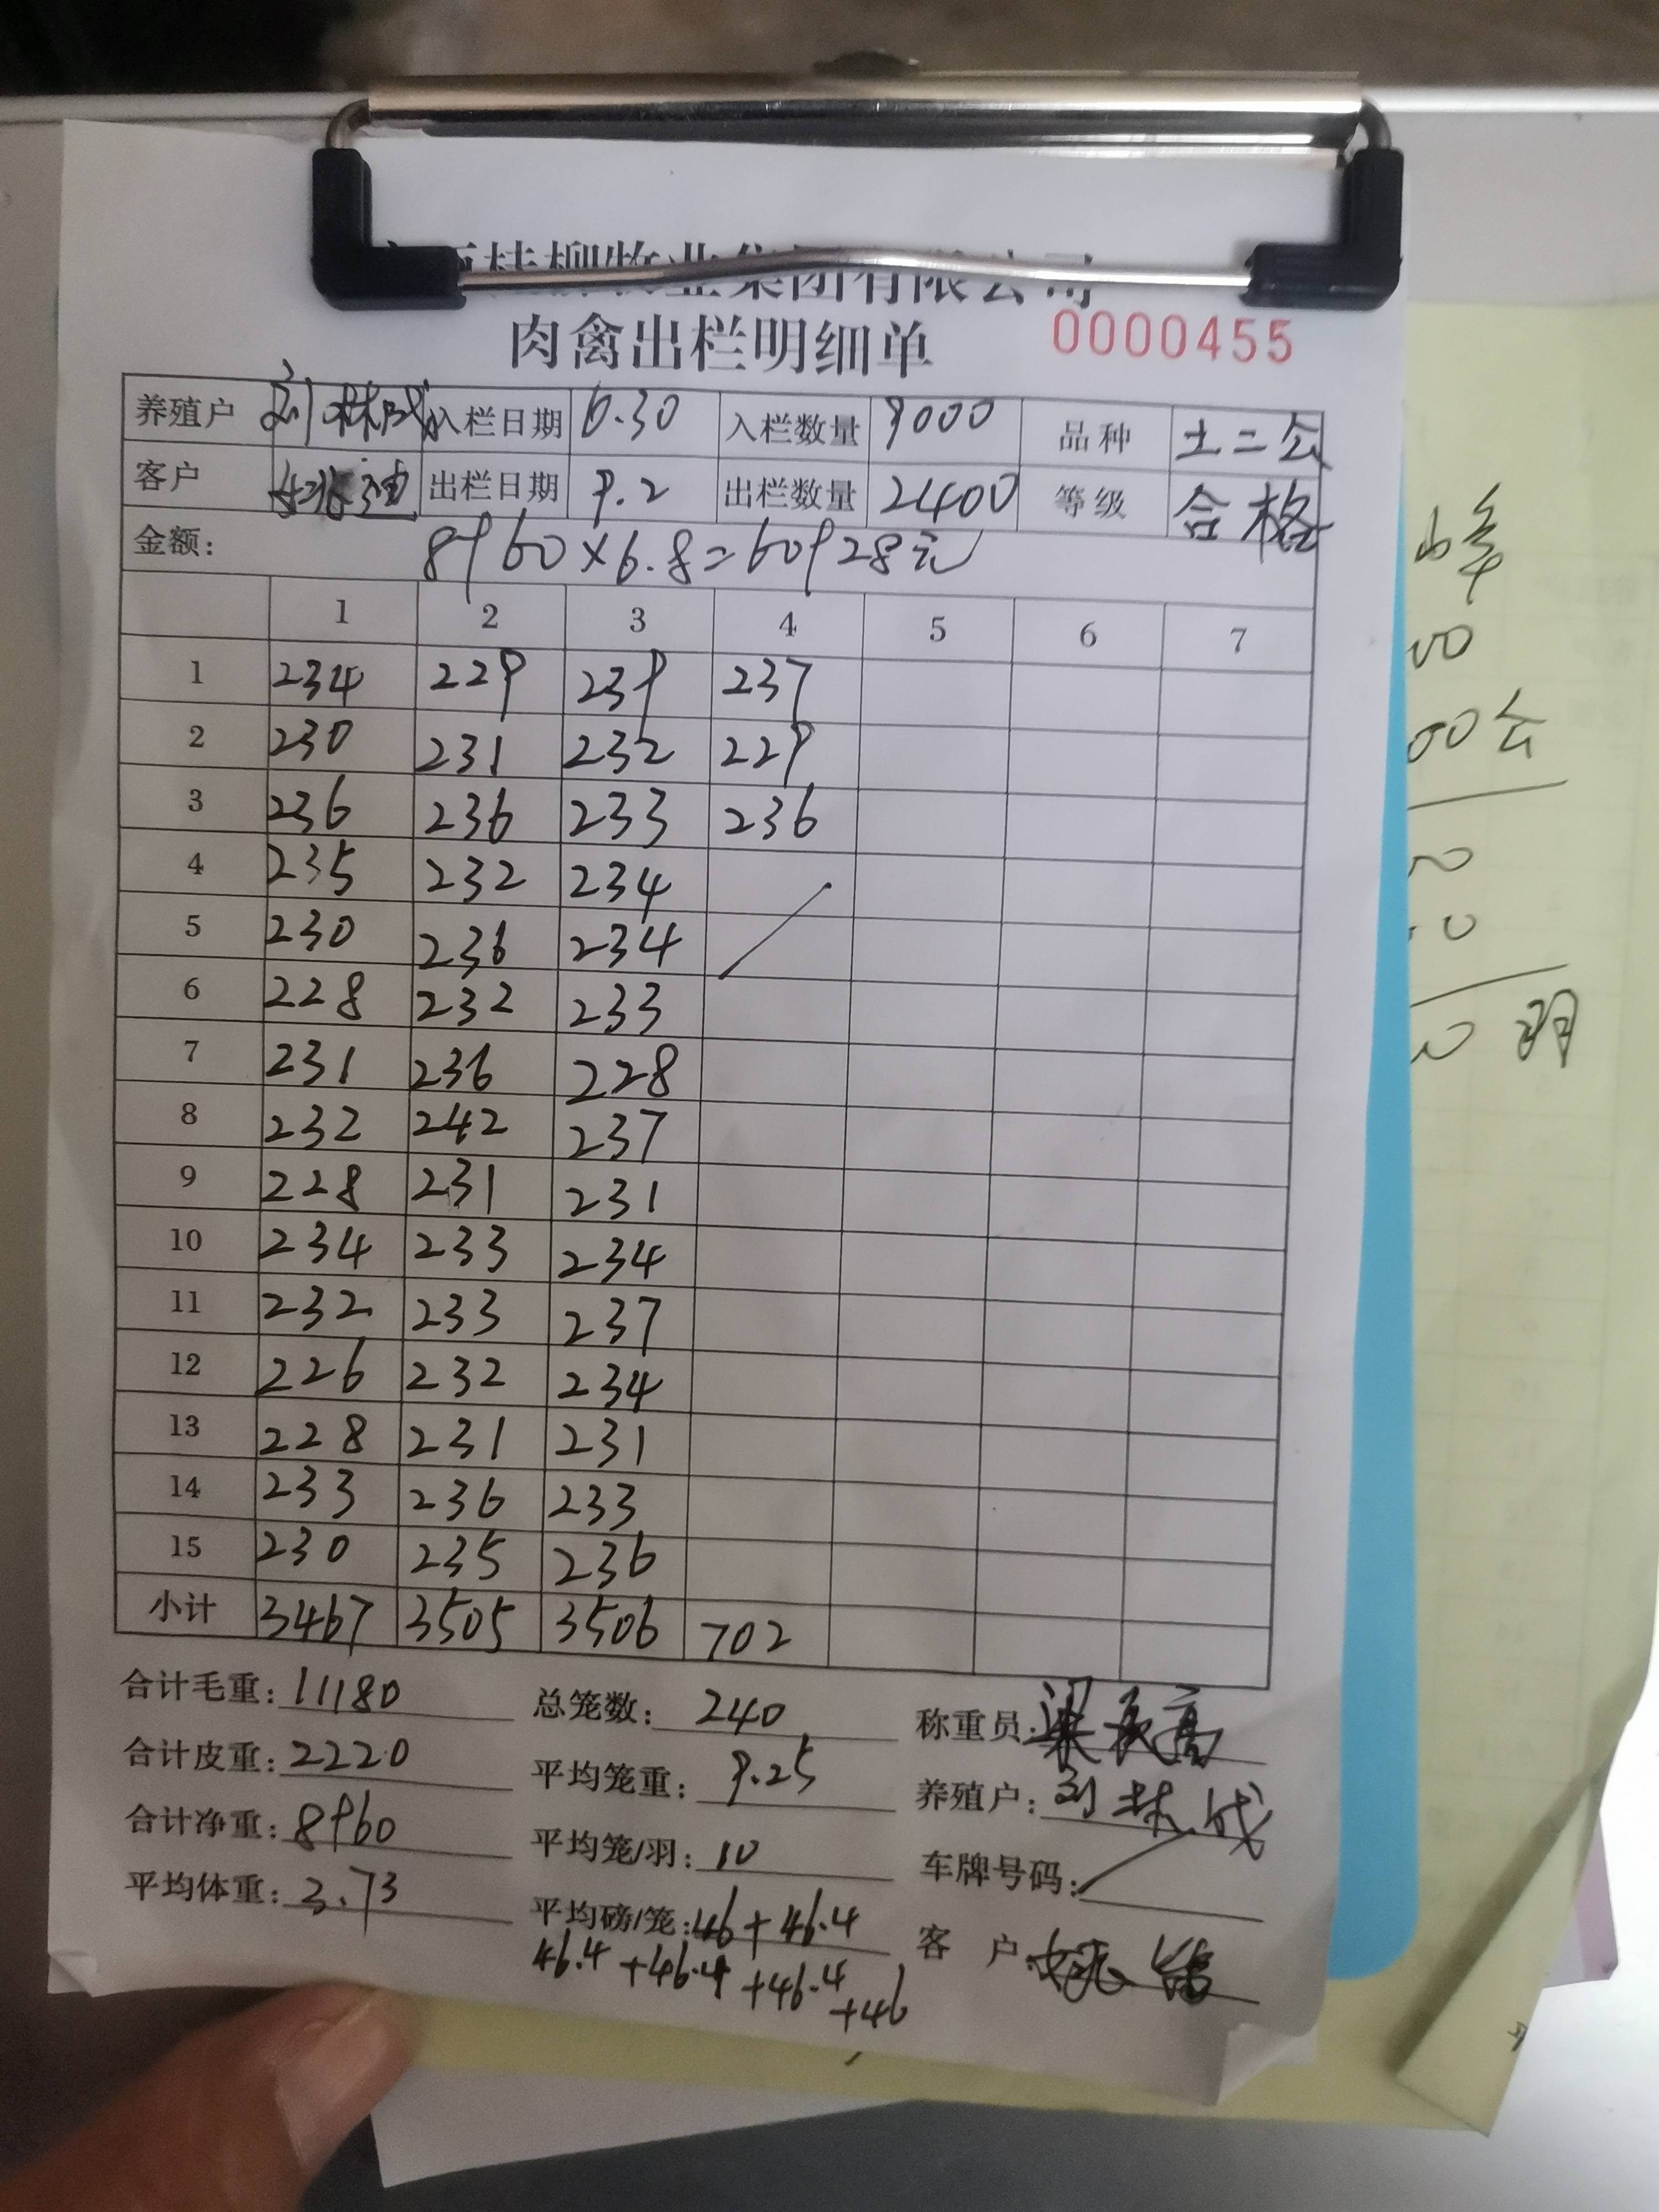 桂柳牧业集团有限公司
肉禽出栏明细单 0000455
养殖户 刘林成 入栏日期 6.30 入栏数量 9000 品种 土二公
客户 出栏日期 9.2 出栏数量 2400 等级 合格
金额: 8960×6.8=60928元
1 2 3 4 5 6 7
1 234 229 239 237
2 230 231 232 229
3 236 236 233 236
4 235 232 234
5 230 236 234
6 228 232 233
7 231 236 228
8 232 242 237
9 228 231 231
10 234 233 234
11 232 233 237
12 226 232 234
13 228 231 231
14 233 236 233
15 230 235 236
小计 3467 3505 3506 702
合计毛重: 11180 总笼数: 240 称重员:
合计皮重: 2220 平均笼重: 9.25 养殖户: 刘林成
合计净重: 8960 平均笼/羽: 10 车牌号码:
平均体重: 3.73 平均磅/笼: 46+46.4 客户:
46.4+46.4+46.4+46
00公
羽